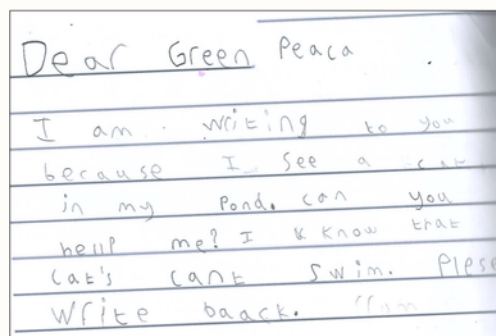 Dear Green Peaca
I am writing to you
because I see a cat
in my Pond. can you
hellp me? I k know that
cat's cant swim. Plese
write baack. from